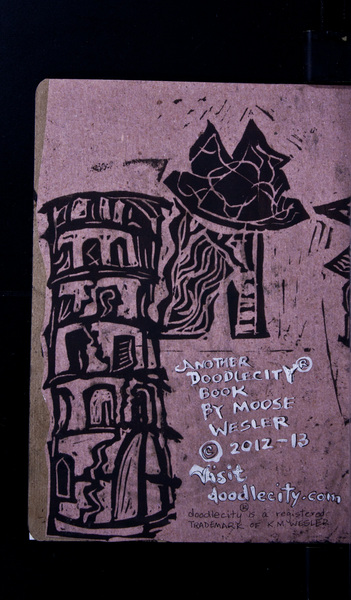 ANOTHER
DOODLECITY®
BOOK
BY MOOSE
WESLER
© 2012-13
Visit
doodlecity.com
doodlecity® is a registered
TRADEMARK OF K M WESLER